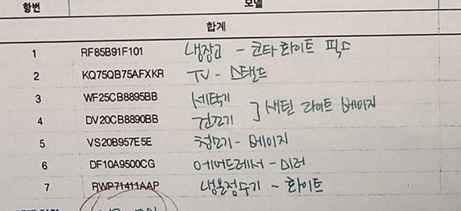 항번 모델
합계
1 RF85B91F101 냉장고 - 코타 화이트 픽스
2 KQ75QB75AFXKR TV - 스탠드
3 WF25CB8895BB 세탁기
새틴 라이트 베이지
4 DV20CB8890BB 건조기
5 VS20B957E5E 청소기 - 베이지
6 DF10A9500CG 에어드레서 - 미러
7 RWP71411AAP 냉온정수기 - 화이트